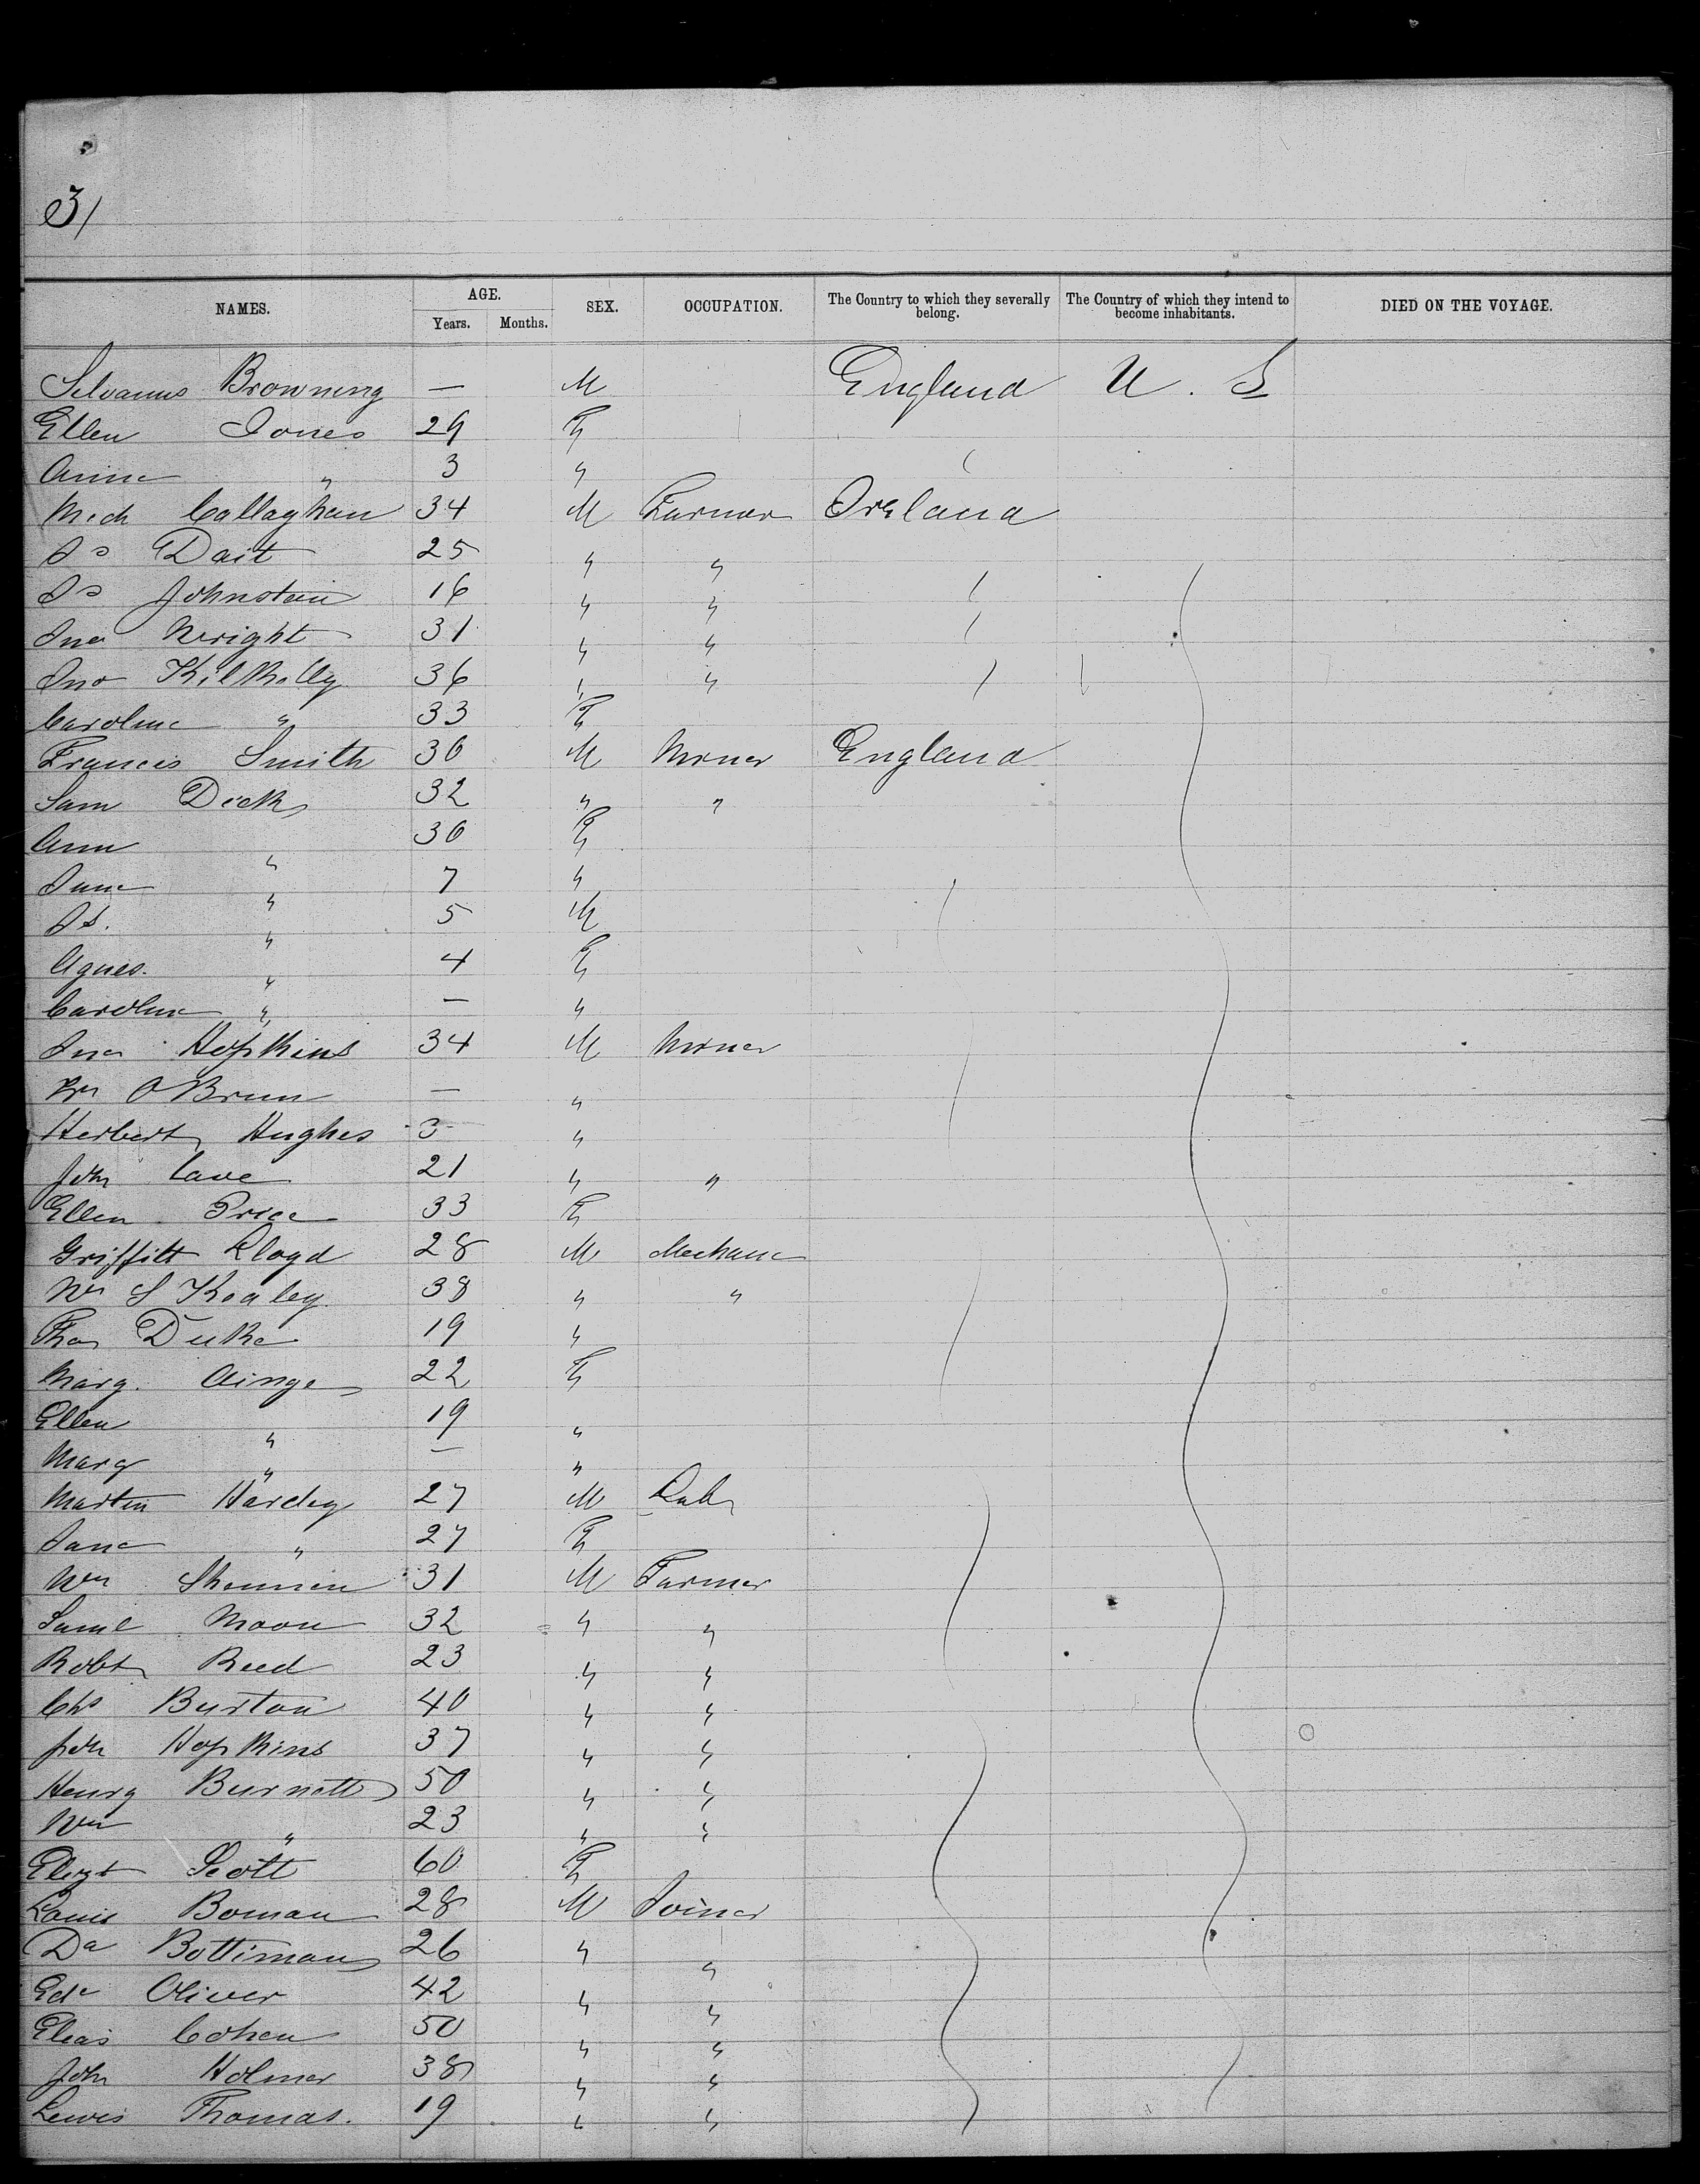 3/
NAMES. AGE. SEX. OCCUPATION. The Country to which they severally belong. The Country of which they intend to become inhabitants. DIED ON THE VOYAGE.
Years. Months.
Silvanus Browning — M England U. S
Ellen Jones 29 F
Anne " 3 "
Mich Callaghan 34 M Farmer Ireland
Js Dait 25 " "
Js Johnston 16 " "
Jno Wright 31 " "
Jno Kilkelly 36 " "
Caroline " 33 F
Francis Smith 30 M Miner England
Sam Dick 32 " "
Ann " 30 F
Jane " 7 "
Js. " 5 M
Agnes. " 4 F
Caroline " — "
Jno Hopkins 34 M Miner
Wm OBrien — "
Herbert Hughes 3 "
John Cave 21 " "
Ellen Price 33 F
Griffith Lloyd 28 M Mechanic
Wm S Kealey 38 " "
Thos Duke 19 "
Marg. Ainge 22 F
Ellen " 19 "
Marg " — "
Martin Hardey 27 M Lab
Jane " 27 F
Wm 31 M Farmer
Saml Moon 32 " "
Robt Reed 23 " "
Chs Burton 40 " "
John Hopkins 37 " "
Henry Burnett 50 " "
Wm " 23 " "
Elizt Scott 60 F
Louis Boman 28 M Joiner
Da Bottiman 26 " "
Edw Oliver 42 " "
Elias Cohen 50 " "
John Holmer 38 " "
Lewis Thomas. 19 " "